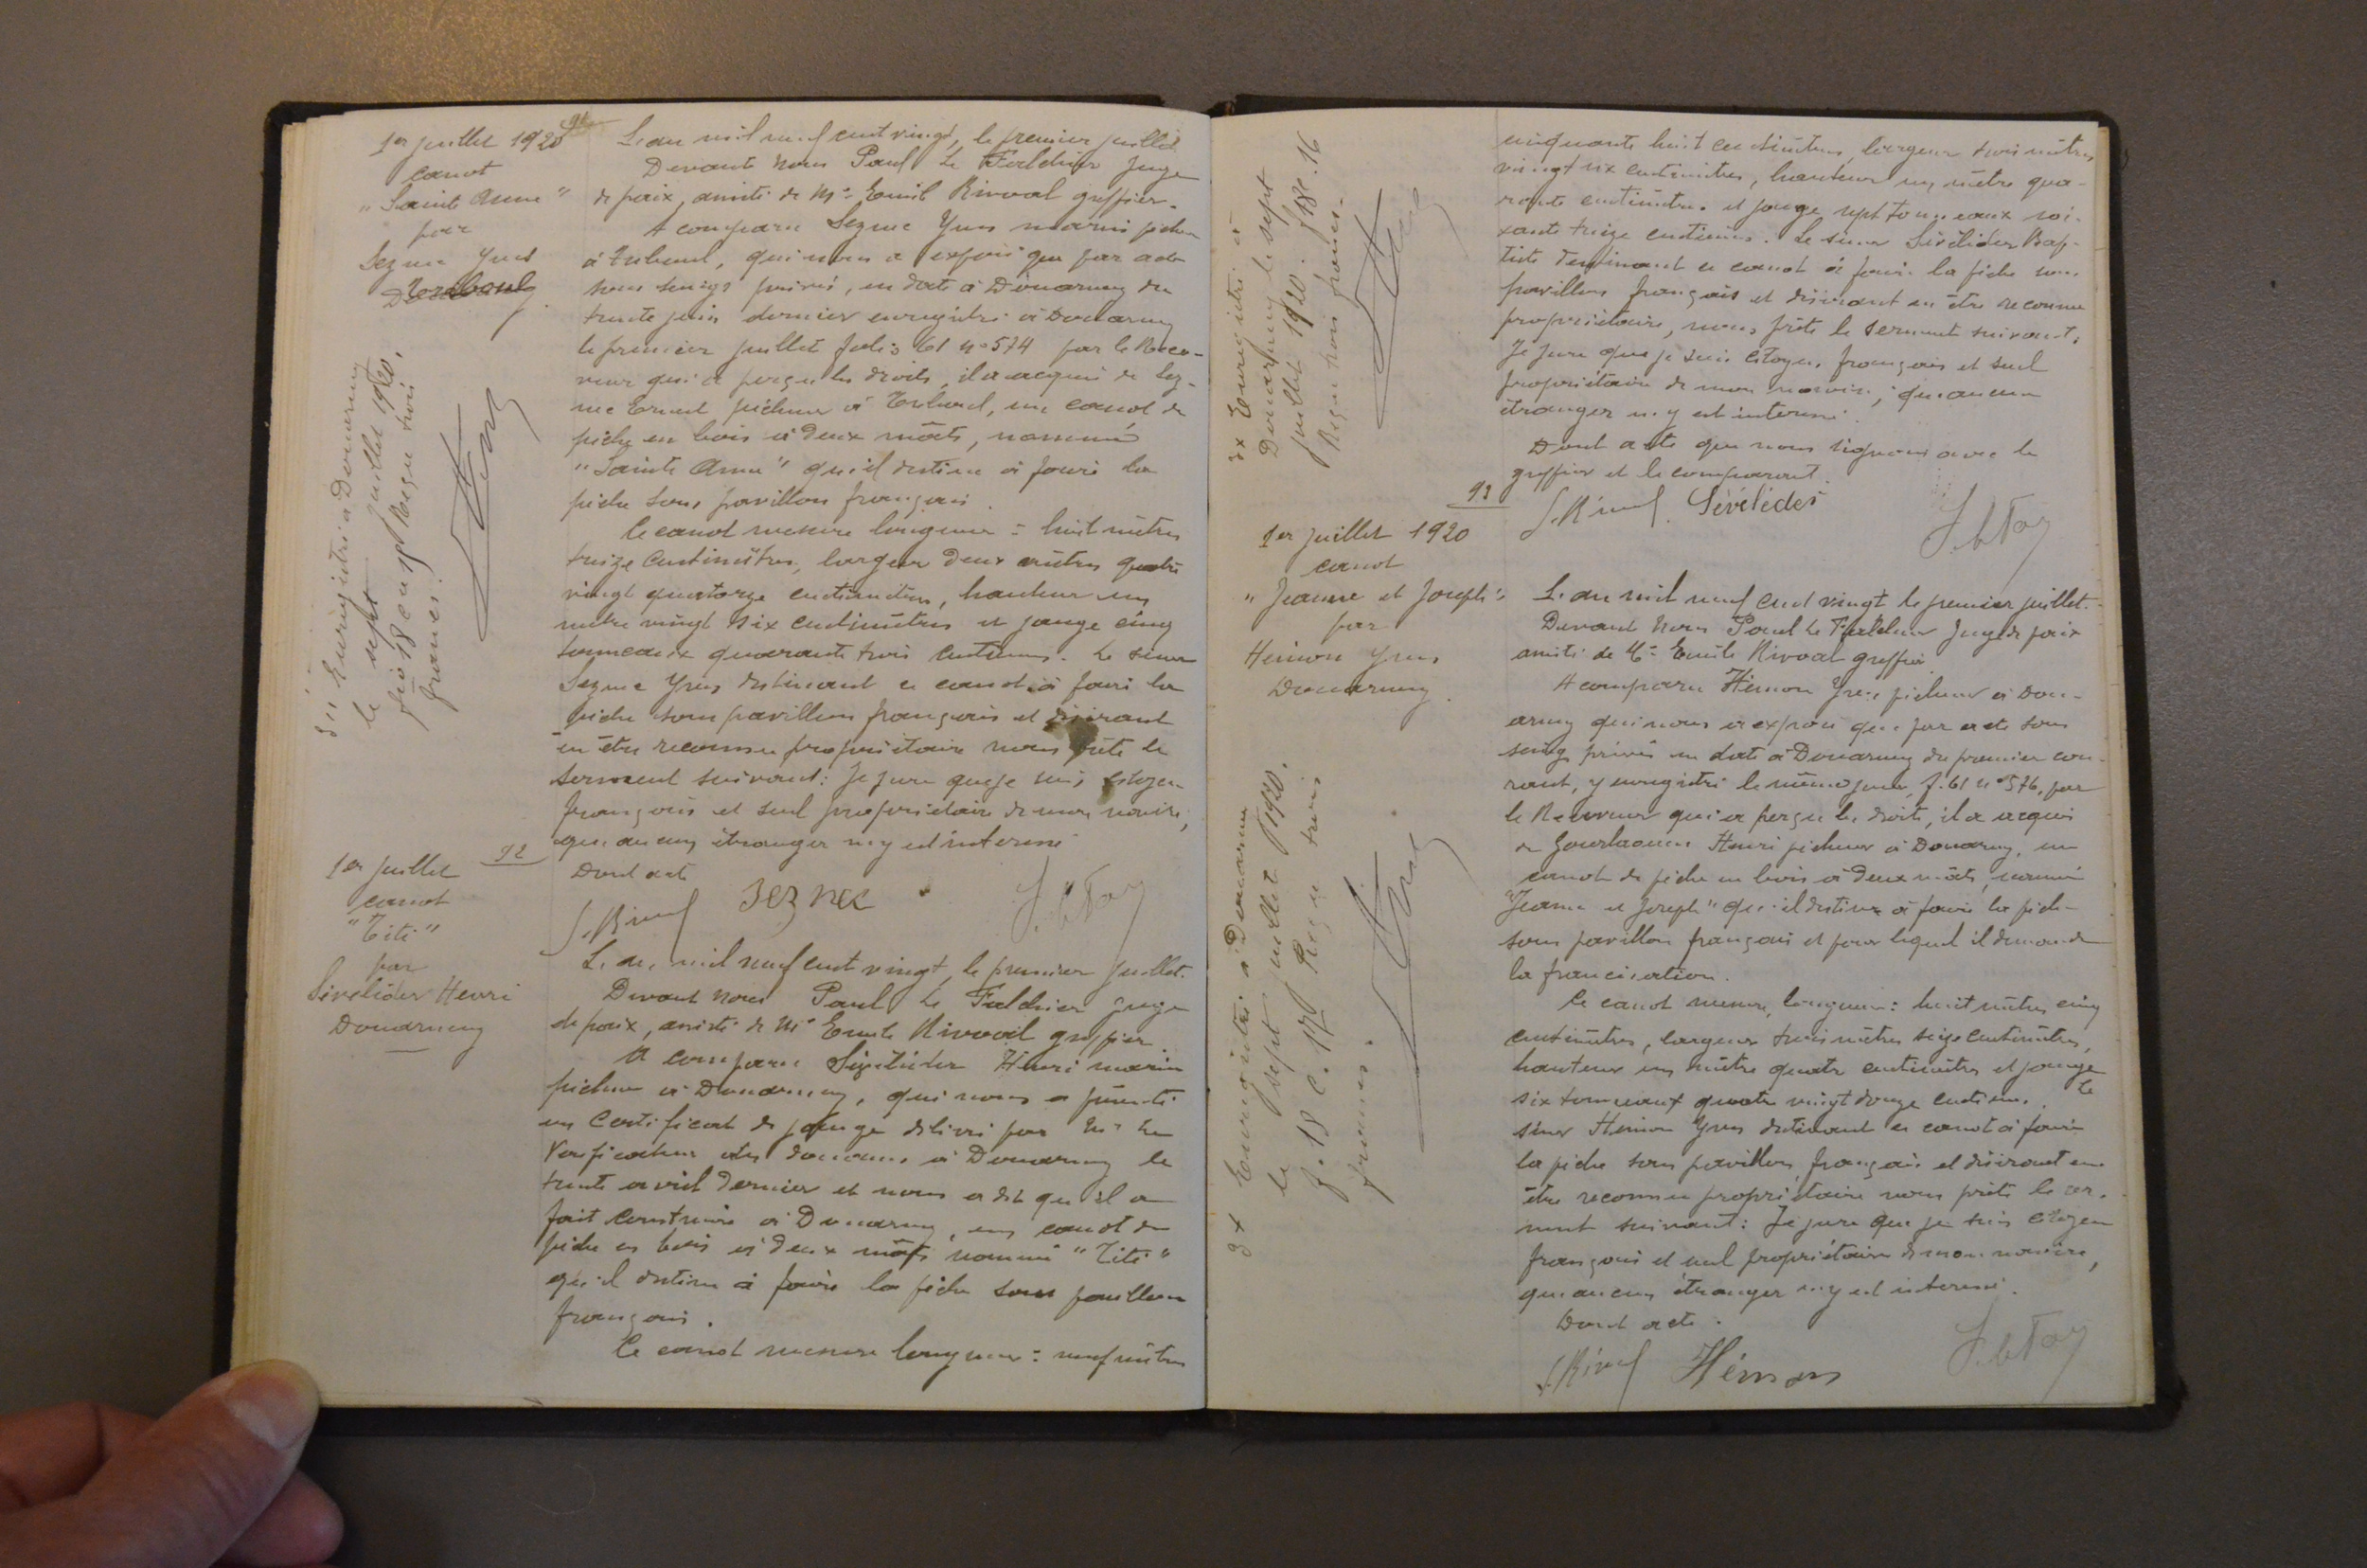 1er juillet 1920
canot
"Sainte Anne"
par
Seznec Yves
91
L'an mil neuf cent vingt, le premier juillet
Devant nous Paul Le Juge
de paix, assisté de Me Emile Rivoal greffier.
A comparu Seznec Yves marin pêcheur
à Tréboul, qui nous a exposé que par acte
sous seings privés, en date à Douarnenez du
trente juin dernier enregistré à Douarnenez
le premier juillet folio 61 no 574 par le Rece-
veur qui a perçu les droits, il a acquis de Sez-
nec Ernest pêcheur à Tréboul, un canot de
pêche en bois à deux mâts, nommé
"Sainte Anne" qu'il destine à faire la
pêche sous pavillon français.
Ce canot mesure longueur = huit mètres
treize centimètres, largeur deux mètres quatre
vingt quatorze centimètres, hauteur un
mètre vingt six centimètres et jauge cinq
tonneaux quarante trois centièmes. Le sieur
Seznec Yves destinant ce canot à faire la
pêche sous pavillon français et désirant
en être reconnu propriétaire nous prête le
serment suivant: Je jure que je suis citoyen
français et seul propriétaire de mon navire,
qu'aucun étranger n'y est intéressé
Dont acte
Seznec
Enregistré à Douarnenez
le sept juillet 1920,
folio 18 case 15 Reçu trois
francs.
1er juillet
92
canot
"Titi"
par
Sévélider Henri
Douarnenez
L'an mil neuf cent vingt, le premier juillet.
Devant nous Paul Le juge
de paix, assisté de Me Emile Rivoal greffier.
A comparu Sévélider Henri marin
pêcheur à Douarnenez, qui nous a présenté
un Certificat de jauge délivré par Mr le
Vérificateur des douanes à Douarnenez le
trente avril dernier et nous a dit qu'il a
fait construire à Douarnenez, un canot de
pêche en bois à deux mâts nommé "Titi"
qu'il destine à faire la pêche sous pavillon
français.
Ce canot mesure longueur = neuf mètres
cinquante huit centimètres, largeur trois mètres
vingt six centimètres, hauteur un mètre qua-
rante centimètres et jauge sept tonneaux soi-
xante treize centièmes. Le sieur Sévélider Bap-
tiste destinant ce canot à faire la pêche sous
pavillon français et désirant en être reconnu
propriétaire, nous prête le serment suivant:
Je jure que je suis citoyen français et seul
propriétaire de mon navire, qu'aucun
étranger n'y est intéressé.
Dont acte que nous signons avec le
greffier et le comparant.
Enregistré à
Douarnenez le sept
juillet 1920. f. 18 c. 16
Reçu trois francs.
93
1er juillet 1920
canot
"Jeanne et Joseph"
par
Hémon Yves
Douarnenez.
L'an mil neuf cent vingt le premier juillet.
Devant nous Paul Le Juge de paix
assisté de Me Emile Rivoal greffier
A comparu Hémon Yves pêcheur à Dou-
arnenez qui nous a exposé que par acte sous
seings privés en date à Douarnenez du premier cou-
rant, y enregistré le même jour, f. 61 no 576, par
le Receveur qui a perçu les droits, il a acquis
de Gourlaouen Henri pêcheur à Douarnenez, un
canot de pêche en bois à deux mâts, nommé
"Jeanne et Joseph" qu'il destine à faire la pêche
sous pavillon français et pour lequel il demande
la francisation.
Ce canot mesure, longueur: huit mètres cinq
centimètres, largeur trois mètres seize centimètres,
hauteur un mètre quatre centimètres et jauge
six tonneaux quatre vingt douze centièmes. Le
sieur Hémon Yves destinant ce canot à faire
la pêche sous pavillon français et désirant en
être reconnu propriétaire nous prête le ser-
ment suivant: Je jure que je suis citoyen
français et seul propriétaire de mon navire,
qu'aucun étranger n'y est intéressé.
Dont acte.
Hémon
Enregistré à Douarnenez
le sept juillet 1920.
f. 18 c. 17 Reçu trois
francs.